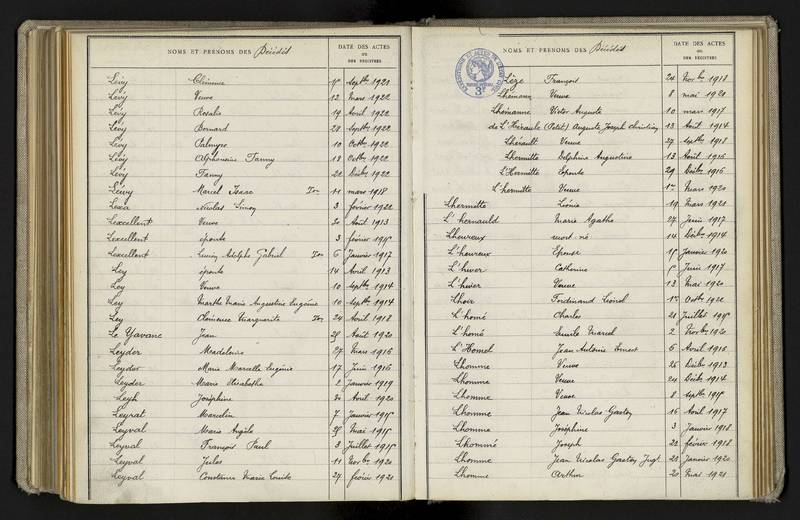 NOMS ET PRÉNOMS DES Décédés
DATE DES ACTES
OU
DES REGISTRES
Lévy Clémence 15 Septbre 1921
Lévy Veuve 12 Mars 1922
Lévy Rosalie 19 Avril 1922
Lévy Bernard 20 Septbre 1922
Lévy Palmyre 10 Octbre 1922
Lévy Alphonsine Fanny 18 Octbre 1922
Lévy Fanny 22 Décbre 1922
Lévy Marcel Isaac Ton 11 mars 1918
Lexa Nicolas Simon 3 février 1922
Lexcellent Veuve 20 Août 1913
Lexcellent épouse 3 février 1915
Lexcellent Adolphe Gabriel Ton 6 Janvier 1917
Ley épouse 14 Avril 1913
Ley Veuve 10 Septbre 1914
Ley Marthe Marie Augustine Eugénie 10 Septbre 1914
Ley Clémence Marguerite Ton 24 Avril 1918
Le Yavanc Jean 25 Août 1920
Leyder Madeleine 27 Mars 1916
Leyder Marie Marcelle Eugénie 17 Juin 1916
Leyder Marie Elisabeth 2 Janvier 1919
Leyh Joséphine 20 Avril 1920
Leyrat Marcelin 7 Janvier 1915
Leyval Marie Angèle 25 Mai 1915
Leyval François Paul 3 Juillet 1915
Leyval Jules 11 Novbre 1920
Leyval Constance Marie Louise 27 février 1921
NOMS ET PRÉNOMS DES Décédés
DATE DES ACTES
OU
DES REGISTRES
Lèze François 24 Novbre 1918
Lheimann Veuve 8 mai 1921
Lhemanne Victor Auguste 10 mars 1917
de L'Héraule (Petit) Auguste Joseph Christian 13 Août 1914
Lhérault Veuve 27 Septbre 1918
Lhermitte Delphine Augustine 13 Août 1916
L'Hermitte Epouse 29 Décbre 1916
L'hermitte Veuve 1er Mars 1920
Lhermitte Léonie 19 Mars 1921
L'hernauld Marie Agathe 27 Juin 1917
Lheureux mort-né 14 Décbre 1914
L'heureux Epouse 15 Janvier 1920
L'hiver Catherine 5 Juin 1917
L'hiver Veuve 13 Mai 1920
Lhoir Ferdinand Lionel 1er Octbre 1920
L'homé Charles 21 Juillet 1915
L'homé Emile Marcel 2 Novbre 1920
L'Homel Jean Antoine Ernest 6 Avril 1916
Lhomme Veuve 26 Décbre 1913
Lhomme Veuve 24 Décbre 1914
Lhomme Veuve 8 Septbre 1915
Lhomme Jean Nicolas Gaston 16 Avril 1917
Lhomme Joséphine 3 Janvier 1918
Lhommé Joseph 22 février 1918
Lhomme Jean Nicolas Gaston Jugt 23 Janvier 1920
Lhomme Arthur 20 Mai 1921